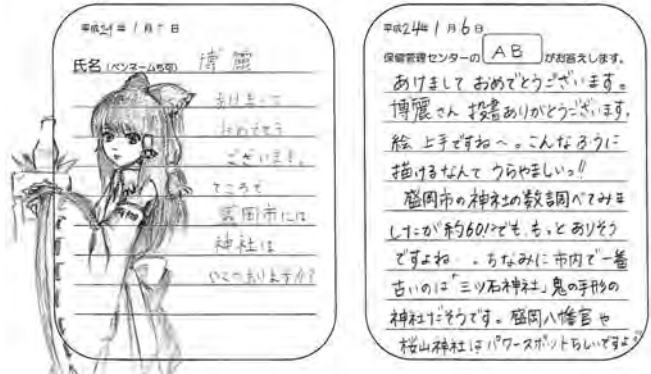 平成24年1月5日
氏名(ペンネームも可) 博麗
あけまして
おめでとう
ございます。
ところで
盛岡市には
神社は
いくつありますか?
平成24年1月6日
保健管理センターの AB がお答えします。
あけまして おめでとうございます。
博麗さん 投書ありがとうございます。
絵 上手ですね~。こんなふうに
描けるなんて うらやましいっ!!
盛岡市の神社の数調べてみま
したが約60!?でも、もっとありそう
ですよね・・。ちなみに市内で一番
古いのは「三ツ石神社」鬼の手形の
神社だそうです。盛岡八幡宮や
桜山神社はパワースポットらしいですよ